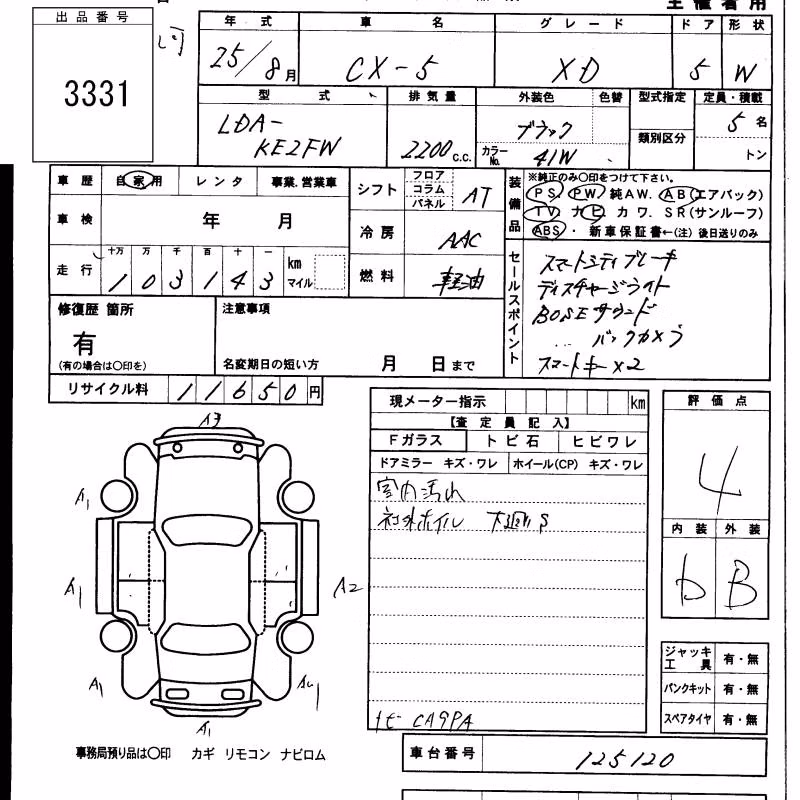 主催者用
出品番号
3331
年式 車名 グレード ドア 形状
25/8月 CX-5 XD 5 W
型式 排気量 外装色 色替 型式指定 定員・積載
LDA-KE2FW 2200c.c. ブラック 類別区分 5名
カラーNo. 41W トン
車歴 自家用 レンタ 事業.営業車
シフト フロア コラム パネル AT
車検 年 月
冷房 AAC
走行 十万 万 千 百 十 一 km マイル
103143
燃料 軽油
装備品 ※純正のみ〇印をつけて下さい。
PS PW 純AW. AB(エアバック)
TV ナビ カワ. SR(サンルーフ)
ABS ・ 新車保証書←(注)後日送りのみ
セールスポイント
スマートシティブレーキ
ディスチャージライト
BOSEサウンド
バックカメラ
スマートキー×2
修復歴 箇所
有
(有の場合は〇印を)
注意事項
名変期日の短い方 月 日まで
リサイクル料 11650円
現メーター指示 km
【査定員記入】
Fガラス トビ石 ヒビワレ
ドアミラー キズ・ワレ ホイール(CP) キズ・ワレ
室内汚れ
社外ホイル
評価点
4
内装 外装
b B
A1
A1
A2
A1
A1
ジャッキ工具 有・無
パンクキット 有・無
スペアタイヤ 有・無
事務局預り品は〇印 カギ リモコン ナビロム
車台番号 125120